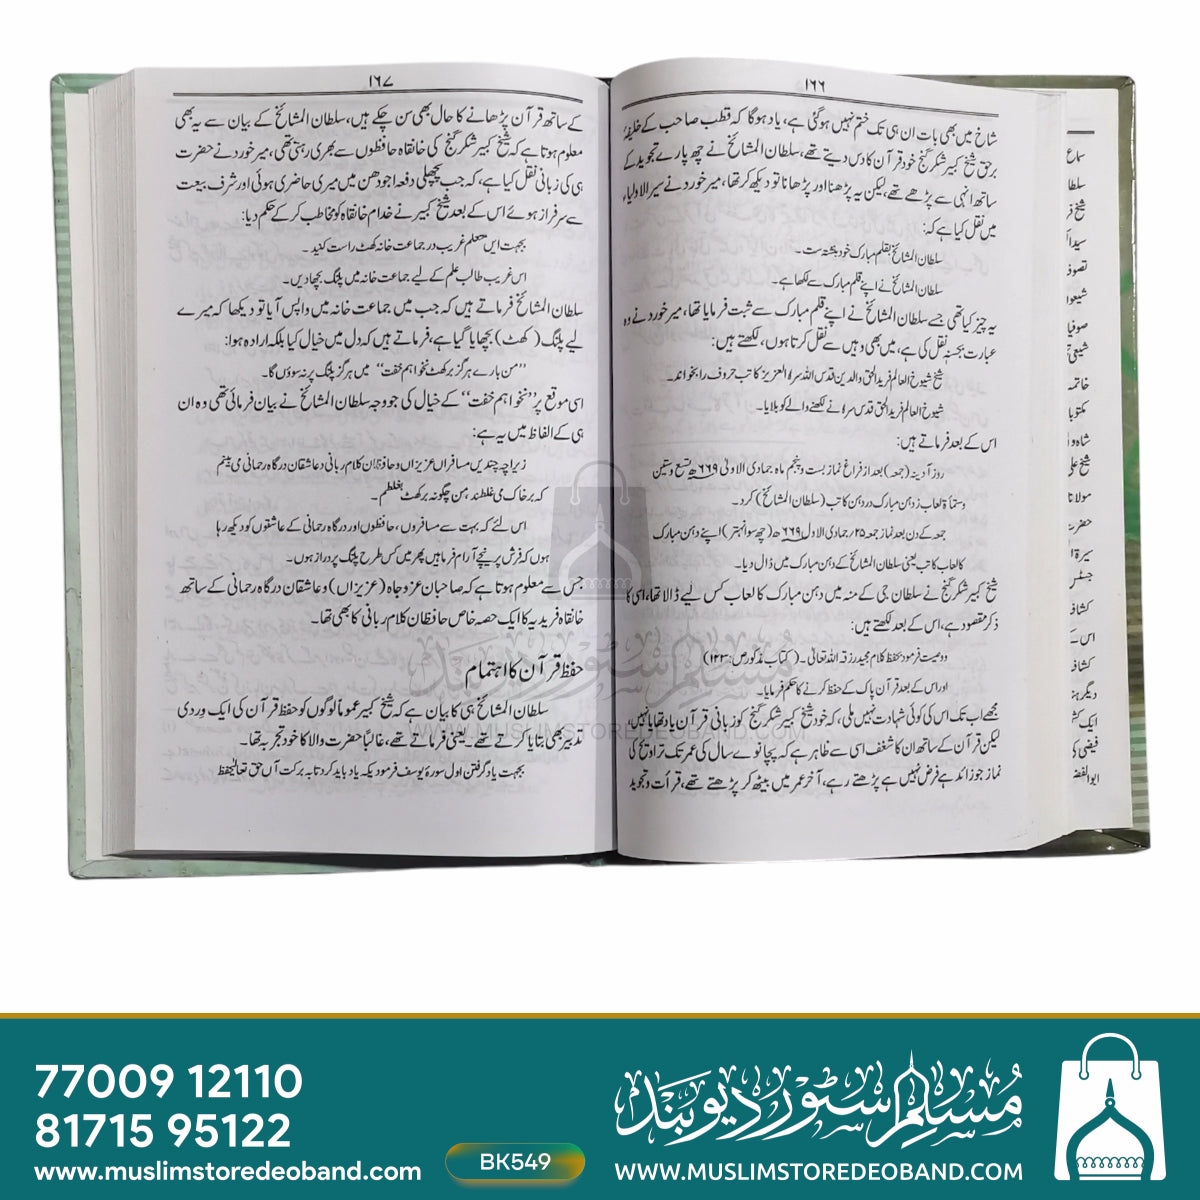 ۱۶۶
شاخ میں بھی بات ان ہی تک ختم نہیں ہوگئی ہے، یاد ہوگا کہ قطب صاحب کے خلیفۂ
برحق شیخ کبیر شکر گنج خود قرآن کا درس دیتے تھے، سلطان المشائخ نے چھ پارے تجوید کے
ساتھ انہی سے پڑھے تھے، لیکن یہ پڑھنا اور پڑھانا تو دیکھ کر تھا، میر خورد نے سیر الاولیاء
میں نقل کیا ہے کہ:
سلطان المشائخ بقلم مبارک خود بنشتہ ست۔
سلطان المشائخ نے اپنے قلم مبارک سے لکھا ہے۔
یہ چیز کیا تھی جسے سلطان المشائخ نے اپنے قلم مبارک سے ثبت فرمایا تھا، میر خورد نے وہ
عبارت بجنسہٖ نقل کی ہے، میں بھی وہیں سے نقل کرتا ہوں، لکھتے ہیں:
شیخ شیوخ العالم فرید الحق والدین قدس اللہ سرہ العزیز کاتب حروف را بخواند۔
شیوخ العالم فرید الحق قدس سرہٗ نے لکھنے والے کو بلایا۔
اس کے بعد فرماتے ہیں:
روز آدینہ (جمعہ) بعد از فراغ نماز بست و پنجم ماہ جمادی الاولیٰ ۶۶۹ھ تسع وستین
وستمأۃ لعاب ز دہن مبارک در دہن کاتب (سلطان المشائخ) کرد۔
جمعہ کے دن بعد نماز جمعہ ۲۵؍ جمادی الاول ۶۶۹ھ (چھ سو انہتر) اپنے دہن مبارک
کا لعاب کاتب یعنی سلطان المشائخ کے دہن مبارک میں ڈال دیا۔
شیخ کبیر شکر گنج نے سلطان جی کے منہ میں دہن مبارک کا لعاب کس لیے ڈالا تھا، اسی کا
ذکر مقصود ہے، اس کے بعد لکھتے ہیں:
ووصیت فرمود بحفظ کلام مجید رزقہ اللہ تعالٰی۔ (کتاب مذکور ص: ۱۲۳)
اور اس کے بعد قرآن پاک کے حفظ کرنے کا حکم فرمایا۔
مجھے اب تک اس کی کوئی شہادت نہیں ملی، کہ خود شیخ کبیر شکر گنج کو زبانی قرآن یاد تھا یا نہیں،
لیکن قرآن کے ساتھ ان کا شغف اسی سے ظاہر ہے کہ پچانوے سال کی عمر تک تراویح کی
نماز جو زائد ہے فرض نہیں ہے پڑھتے رہے، آخر عمر میں بیٹھ کر پڑھتے تھے، قرأت و تجوید
۱۶۷
کے ساتھ قرآن پڑھانے کا حال بھی سن چکے ہیں، سلطان المشائخ کے بیان سے یہ بھی
معلوم ہوتا ہے کہ شیخ کبیر شکر گنج کی خانقاہ حافظوں سے بھری رہتی تھی، میر خورد نے حضرت
ہی کی زبانی نقل کیا ہے، کہ جب پچھلی دفعہ اجودھن میں میری حاضری ہوئی اور شرف بیعت
سے سرفراز ہوئے اس کے بعد شیخ کبیر نے خدام خانقاہ کو مخاطب کر کے حکم دیا:
بجہت ایں متعلم غریب در جماعت خانہ کھٹ راست کنید۔
اس غریب طالب علم کے لیے جماعت خانہ میں پلنگ بچھا دیں۔
سلطان المشائخ فرماتے ہیں کہ جب میں جماعت خانہ میں واپس آیا تو دیکھا کہ میرے
لیے پلنگ (کھٹ) بچھایا گیا ہے، فرماتے ہیں کہ دل میں خیال کیا بلکہ ارادہ ہوا:
”من بارے ہرگز برکھٹ نخواہم خفت“ میں ہرگز پلنگ پر نہ سوؤں گا۔
اسی موقع پر ”نخواہم خفت“ کے خیال کی جو وجہ سلطان المشائخ نے بیان فرمائی تھی وہ ان
ہی کے الفاظ میں یہ ہے:
زیرا چہ چندیں مسافراں عزیزاں وحافظان کلام ربانی دعاشقان درگاہ رحمانی می بینم
کہ برخاک می غلطند، من چگونہ برکھٹ بغلطم۔
اس لئے کہ بہت سے مسافروں، حافظوں اور درگاہ رحمانی کے عاشقوں کو دیکھ رہا
ہوں کہ فرش پر نیچے آرام فرما ہیں پھر میں کس طرح پلنگ پر دراز ہوں۔
جس سے معلوم ہوتا ہے کہ صاحبان عز و جاہ (عزیزاں) و عاشقان درگاہ رحمانی کے ساتھ
خانقاہ فریدیہ کا ایک حصہ خاص حافظان کلام ربانی کا بھی تھا۔
حفظ قرآن کا اہتمام
سلطان المشائخ ہی کا بیان ہے کہ شیخ کبیر عموماً لوگوں کو حفظ قرآن کی ایک وِردی
تدبیر بھی بتایا کرتے تھے۔ یعنی فرماتے تھے، غالباً حضرت والا کا خود تجربہ تھا۔
بجہت یاد گرفتن اول سورۂ یوسف فرمود یکہ یاد باید کرد تا بہ برکت آں حق تعالیٰ حفظ
سماع
سلطا
شیخ فر
تصوف
شیعوا
صوفیا
خاتمہ
مکتوبا
شاہ وا
شیخ علی
مولانا
حضرت
سیرۃ ا
کشاف
دیگر ہن
فیضی کی
ابوالفضل
مسلم سٹور دیوبند
WWW.MUSLIMSTOREDEOBAND.COM
77009 12110
81715 95122
www.muslimstoredeoband.com
BK549
مسلم سٹور دیوبند
WWW.MUSLIMSTOREDEOBAND.COM